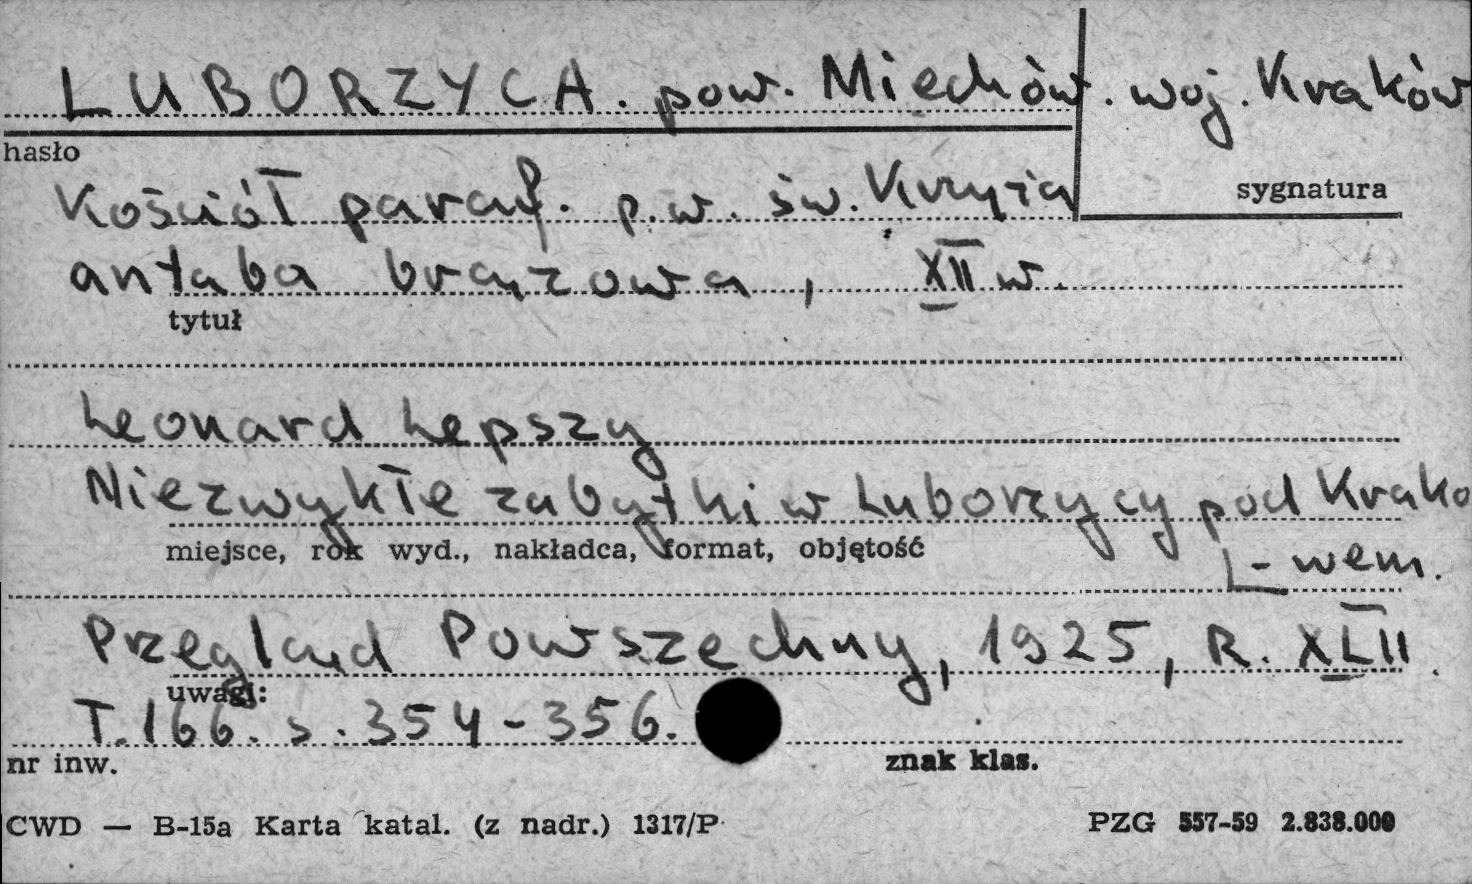 LUBORZYCA. pow. Miechów. woj. Kraków
hasło
sygnatura
Kościół paraf. p.w. św. Krzyża
antaba brązowa, XII w.
tytuł
Leonard Lepszy
Niezwykłe zabytki w Luborzycy pod Krako
miejsce, rok wyd., nakładca, format, objętość
-wem.
Przegląd Powszechny, 1925, R. XLII.
uwagi:
T.166. s. 354-356.
nr inw.
znak klas.
CWD — B-15a Karta katal. (z nadr.) 1317/P
PZG 557-59 2.838.000